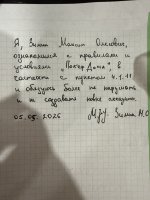 Я, Зимин Максим Олегович,
ознакомился с правилами и
условиями „Покер Дома", в
частности с пунктом 4.1.11
и обязуюсь более не нарушать
и не создавать новые аккаунты.
05.05.2026 Зимин М.О